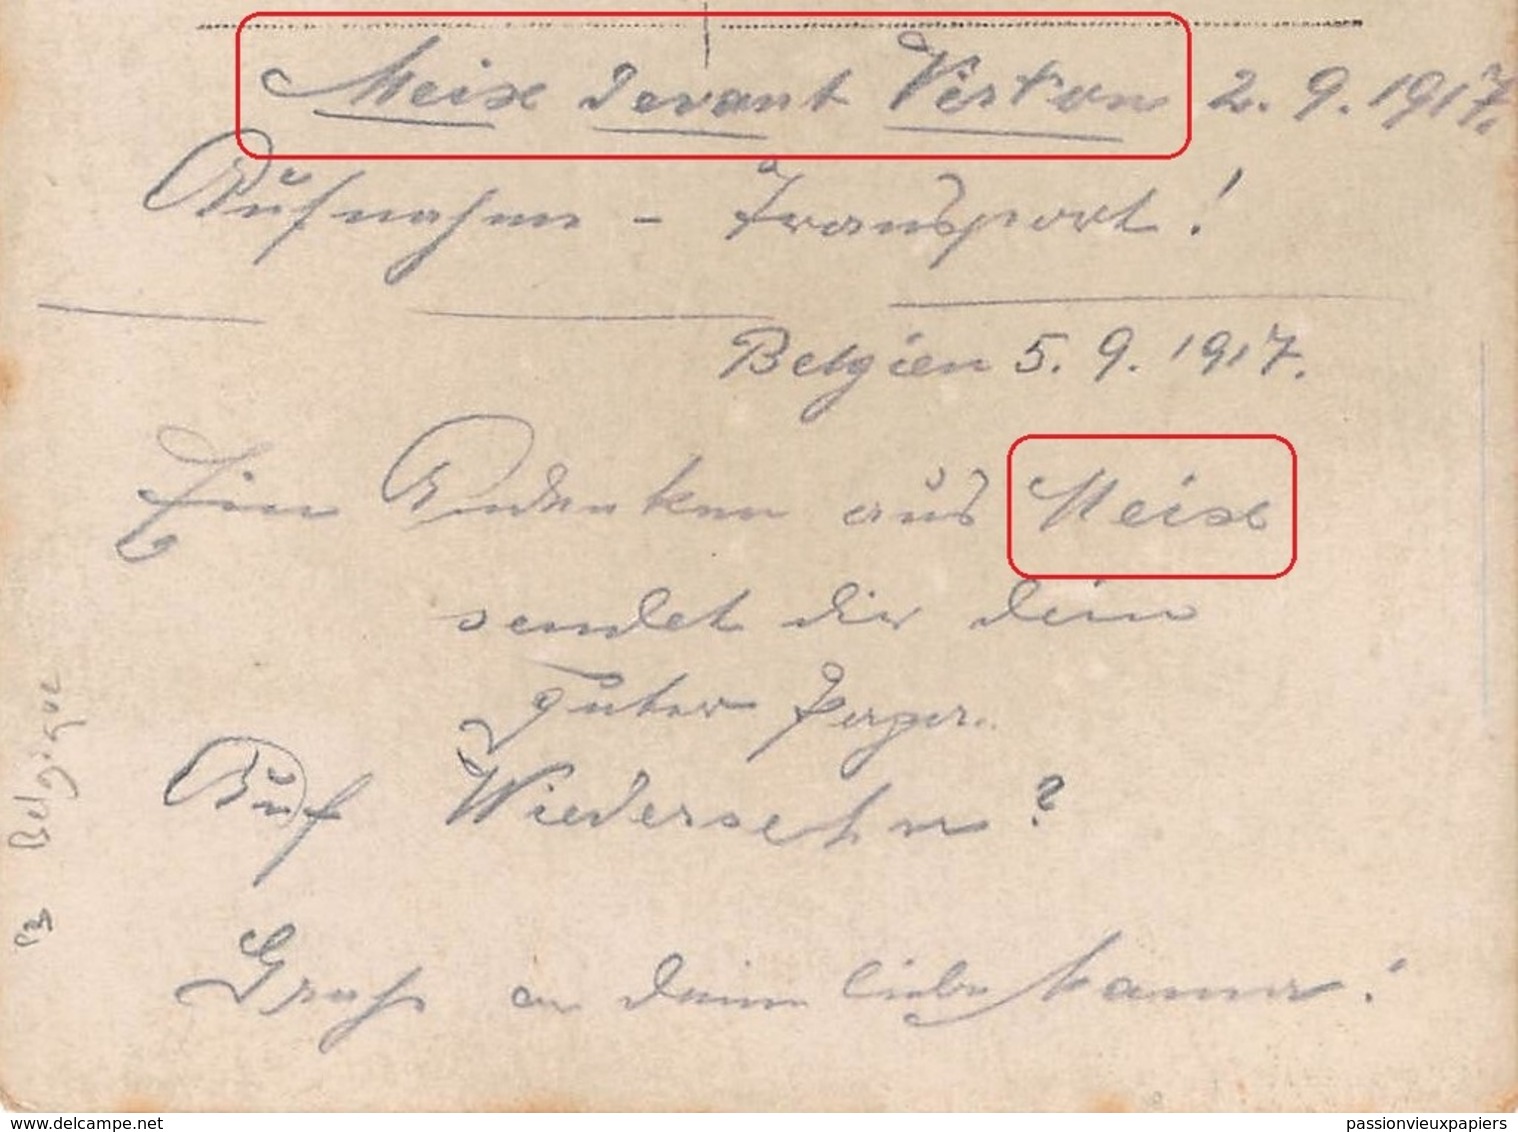 Meix devant Virton 2. 9. 1917.
Aufnahme - Transport!
Belgien 5. 9. 1917.
Ein Andenken aus Meix
sendet dir dein
guter
Auf Wiedersehn?
Gruß an deine liebe
Belgique
delcampe.net
passionvieuxpapiers